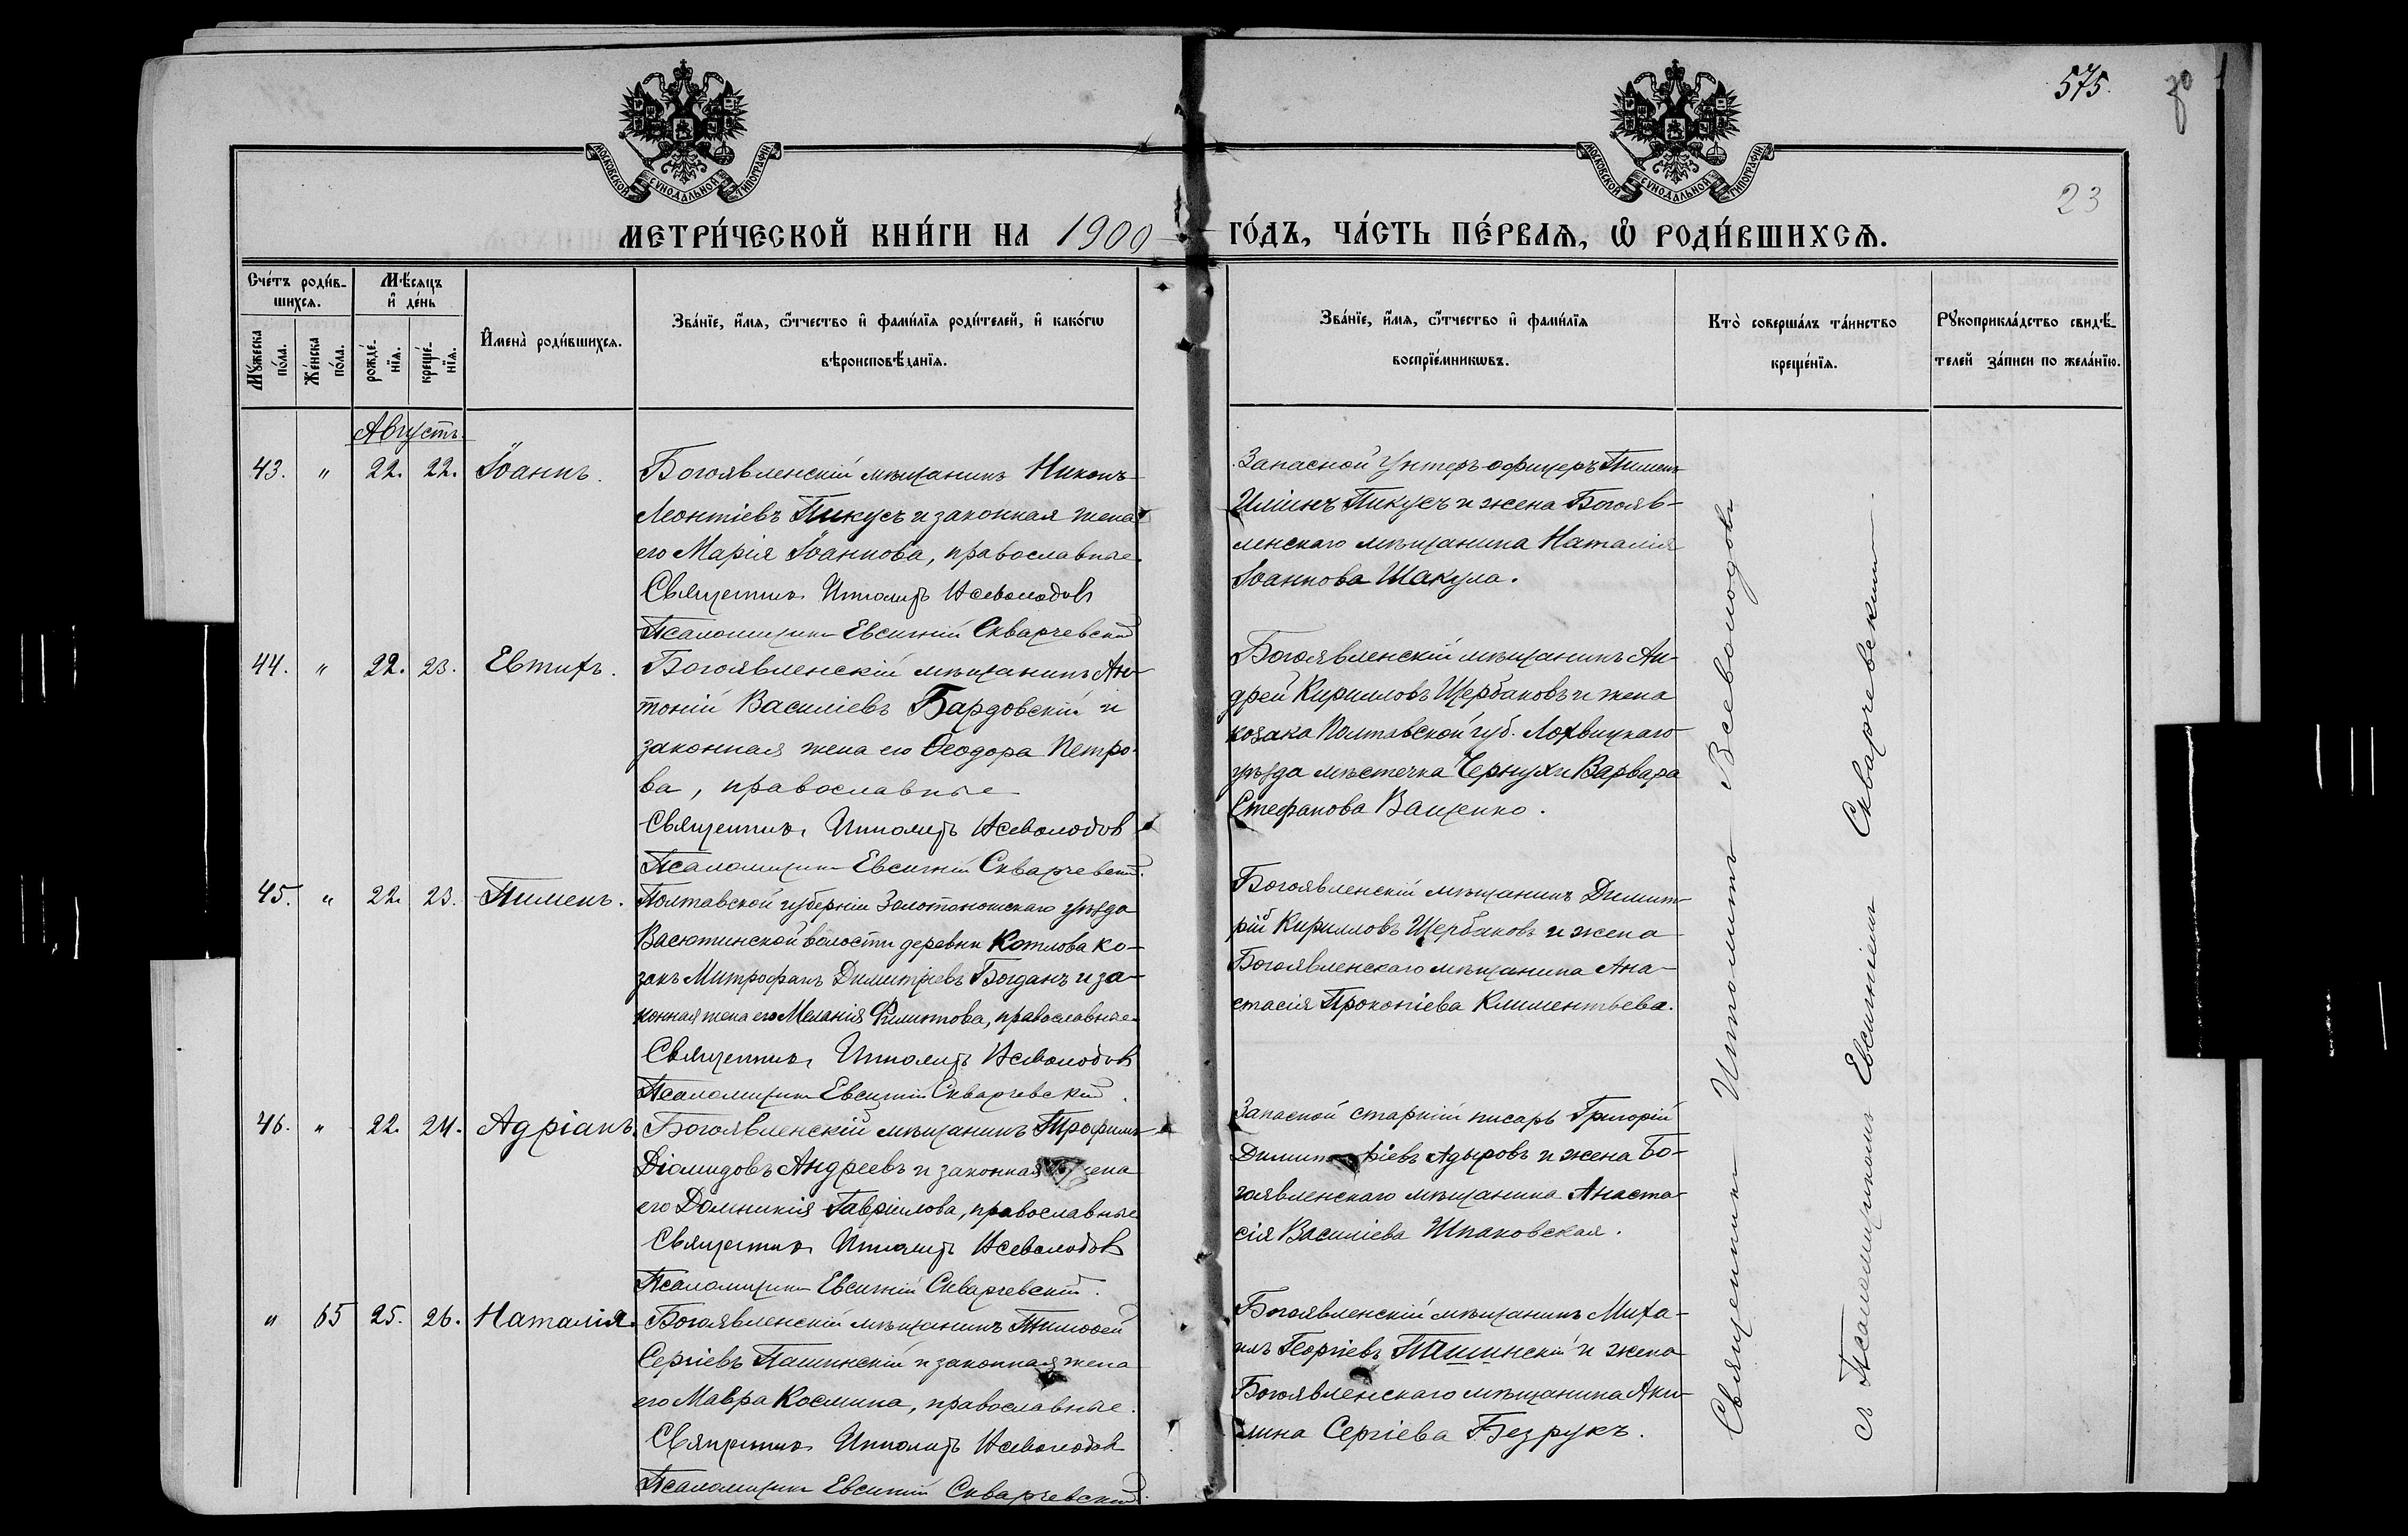 МОСКОВСКОЙ СѴНОДАЛЬНОЙ ТИПОГРАФІИ
МОСКОВСКОЙ СѴНОДАЛЬНОЙ ТИПОГРАФІИ
575.
23
МЕТРИ́ЧЕСКОЙ КНИ́ГИ НА 1900 ГО́ДЪ, ЧА́СТЬ ПЕ́РВАѦ, Ѡ҆ РОДИ́ВШИХСѦ.
Сче́тъ роди́в-
шихсѧ.
Мꙋ́жеска по́ла.
Же́нска по́ла.
Мѣ́сѧцъ
и҆ де́нь
рожде́-
нїѧ.
креще́-
нїѧ.
И҆мена̀ роди́вшихсѧ.
Зва́нїе, и҆́мѧ, ѻ҆́тчество и҆ фами́лїѧ роди́телей, и҆ како́гѡ
вѣроисповѣ́данїѧ.
Зва́нїе, и҆́мѧ, ѻ҆́тчество и҆ фами́лїѧ
воспрїе́мникѡвъ.
Кто̀ соверша́лъ та́инство
креще́нїѧ.
Рꙋкоприкла́дство свидѣ́-
телей за́писи по жела́нїю.
Августъ.
43. " 22. 22. Іоаннъ.
Богоявленскій мѣщанинъ Никонъ
Леонтіевъ Пикусъ и законная жена
его Марія Іоаннова, православные
Священникъ Ипполитъ Всеволодовъ
Псаломщикъ Евсигній Скварчевскій
Запасной Унтеръ-офицеръ Пименъ
Иліинъ Пикусъ и жена Богояв-
ленскаго мѣщанина Наталія
Іоаннова Шакула.
44. " 22. 23. Евтихъ.
Богоявленскій мѣщанинъ Ан-
тоній Василіевъ Бардовскій и
законная жена его Ѳеодора Петро-
ва, православные
Священникъ Ипполитъ Всеволодовъ
Псаломщикъ Евсигній Скварчевскій.
Богоявленскій мѣщанинъ Ан-
дрей Кирилловъ Щербаковъ и жена
козака Полтавской губ. Лохвицкаго
уѣзда мѣстечка Чернухи Варвара
Стефанова Ващенко.
45. " 22. 23. Пименъ.
Полтавской губерніи Золотоношскаго уѣзда
Васютинской волости деревни Котлова ко-
закъ Митрофанъ Димитріевъ Богданъ и за-
конная жена его Меланія Филиппова, православные
Священникъ Ипполитъ Всеволодовъ
Псаломщикъ Евсигній Скварчевскій.
Богоявленскій мѣщанинъ Димит-
рій Кирилловъ Щербаковъ и жена
Богоявленскаго мѣщанина Ана-
стасія Прокопіева Климентьева.
46. " 22. 24. Адріанъ.
Богоявленскій мѣщанинъ Трофимъ
Діомидовъ Андреевъ и законная жена
его Домникія Гавріилова, православные
Священникъ Ипполитъ Всеволодовъ
Псаломщикъ Евсигній Скварчевскій.
Запасной старшій писарь Григорій
Димитріевъ Адыровъ и жена Бо-
гоявленскаго мѣщанина Анаста-
сія Василіева Шпаковская.
" 65 25. 26. Наталія.
Богоявленскій мѣщанинъ Тимоѳей
Сергіевъ Пашинскій и законная жена
его Мавра Космина, православные.
Священникъ Ипполитъ Всеволодовъ
Псаломщикъ Евсигній Скварчевскій.
Богоявленскій мѣщанинъ Миха-
илъ Георгіевъ и жена
Богоявленскаго мѣщанина Аки-
лина Сергіева Безрукъ.
Священникъ Ипполитъ Всеволодовъ
съ Псаломщикомъ Евсигніемъ Скварчевскимъ